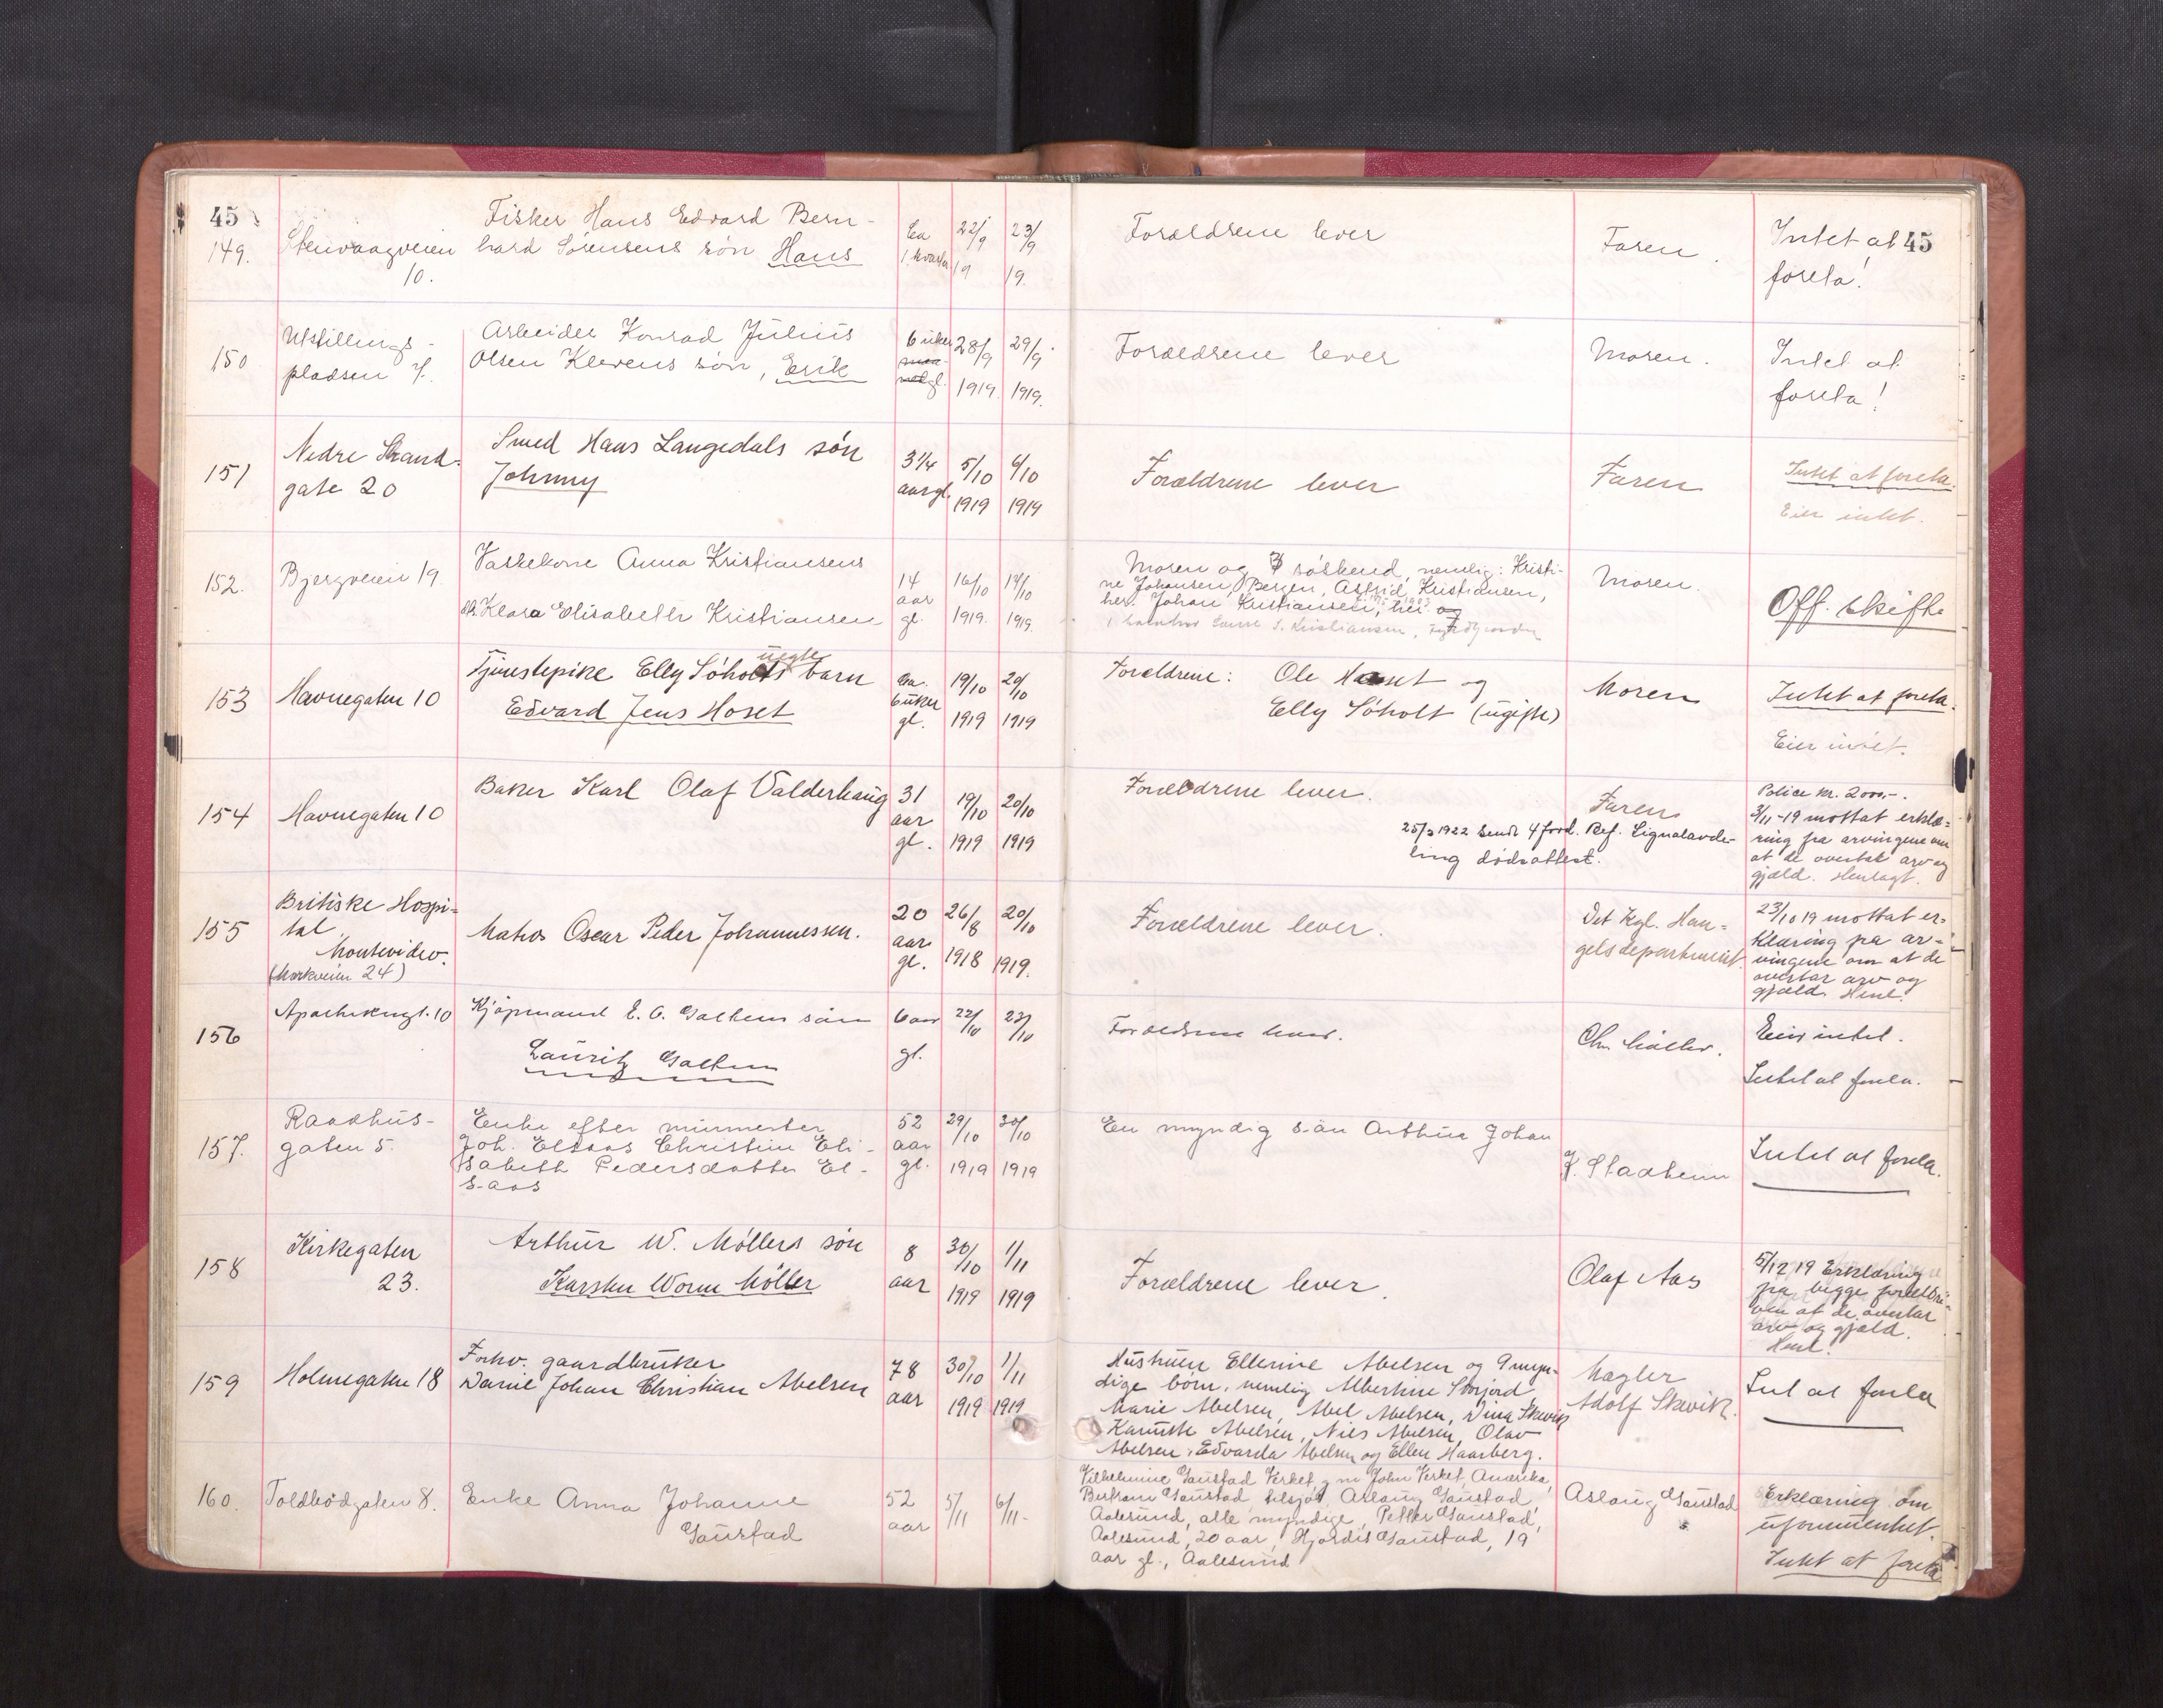 45
149.
Stenvaagveien
10.
Fisker Hans Edvard Bern-
hard Sørensens søn Hans
Ca
1. kvarter
22/9
19
23/9
19.
Forældrene lever
Faren.
Intet at
foreta!
45
150
Utstillings-
pladsen 7.
Arbeider Konrad Julius
Olsen Klevens søn, Erik
6 uker
gl.
28/9
1919.
29/9
1919.
Forældrene lever
Moren.
Intet at
foreta!
151
Nedre Strand-
gate 20
Smed Hans Langedals søn
Johnny
3 1/4
aar gl.
5/10
1919
6/10
1919
Forældrene lever
Faren
Intet at foreta.
Eier intet.
152.
Bjergveien 19.
Vaskekone Anna Kristiansens
dtr. Klara Elisabeth Kristiansen
14
aar
gl.
16/10
1919.
17/10
1919.
Moren og søskend, nemlig: Kristi-
ne Johansen, Bergen, Astrid Kristiansen,
her. Johan Kristiansen, her og
S. Kristiansen,
Moren.
Off. skifte
153
Havnegaten 10
Tjenestepike Elly Søholts uegte barn
Edvard Jens Hoset
Ca.
6 uker
gl.
19/10
1919
20/10
1919
Forældrene: Ole Hoset og
Elly Søholt (ugifte)
Moren
Intet at foreta.
Eier intet.
154
Havnegaten 10
Baker Karl Olaf Valderhaug
31
aar
gl.
19/10
1919
20/10
1919
Forældrene lever.
Faren
25/3 1922 sendt 4 ford. Ref. Signalavde-
ling dødsattest.
Police kr. 2000,-.
3/11-19 mottat erklæ=
ring fra arvingene om
at de overtak arv og
gjæld. Henlagt.
155
Britiske Hospi=
tal
Montevideo.
(Markveien 24)
Matros Oscar Peder Johannessen.
20
aar
gl.
26/8
1918
20/10
1919.
Forældrene lever.
Det Kgl. Han=
delsdepartement.
23/10 19 mottat er=
klæring fra ar=
vingene om at de
overtar arv og
gjæld. Henl.
156
Apothekergt. 10
Kjøpmand E. A. Galtens søn
Lauritz Galten
6 aar
gl.
22/10
23/10
Forældrene lever.
Chr. Møller.
Eier intet.
Intet at foreta.
157.
Raadhus-
gaten 5.
Enke efter murmester
Joh. Elsaas Christine Eli-
sabeth Pedersdatter El-
saas
52
aar
gl.
29/10
1919
30/10
1919
En myndig søn Arthur Johan
K. Stadheim
Intet at foreta.
158
Kirkegaten
23.
Arthur W. Møllers søn
Karsten Worm Møller
8
aar
30/10
1919
1/11
1919
Forældrene lever.
Olaf Aas
5/12 19 Erklæring
fra begge forældre-
om at de overtar
arv og gjæld.
Henl.
159
Holmegaten 18
Forhv. gaardbruker
Daniel Johan Christian Abelsen
78
aar
30/10
1919
1/11
1919
Hustruen Ellerine Abelsen og 9 myn-
dige børn, nemlig Albertine Storjord,
Marie Abelsen, Abel Abelsen, Dina Skevik
Kanutte Abelsen, Nils Abelsen, Olav
Abelsen, Edvarda Abelsen og Ellen Haarberg.
Mægler
Adolf Skevik.
Int at foreta
160.
Toldbodgaten 8.
Enke Anna Johanne
Gaustad
52
aar
5/11
6/11-
Vilhelmine Gaustad Verket g.m. John Verket, Amerika,
Bertram Gaustad, tilsjøs, Aslaug Gaustad,
Aalesund, alle myndige, Petter Gaustad,
Aalesund, 20 aar, Hjørdis Gaustad, 19
aar gl., Aalesund
Aslaug Gaustad
Erklæring om
uformuenhet.
Intet at foreta